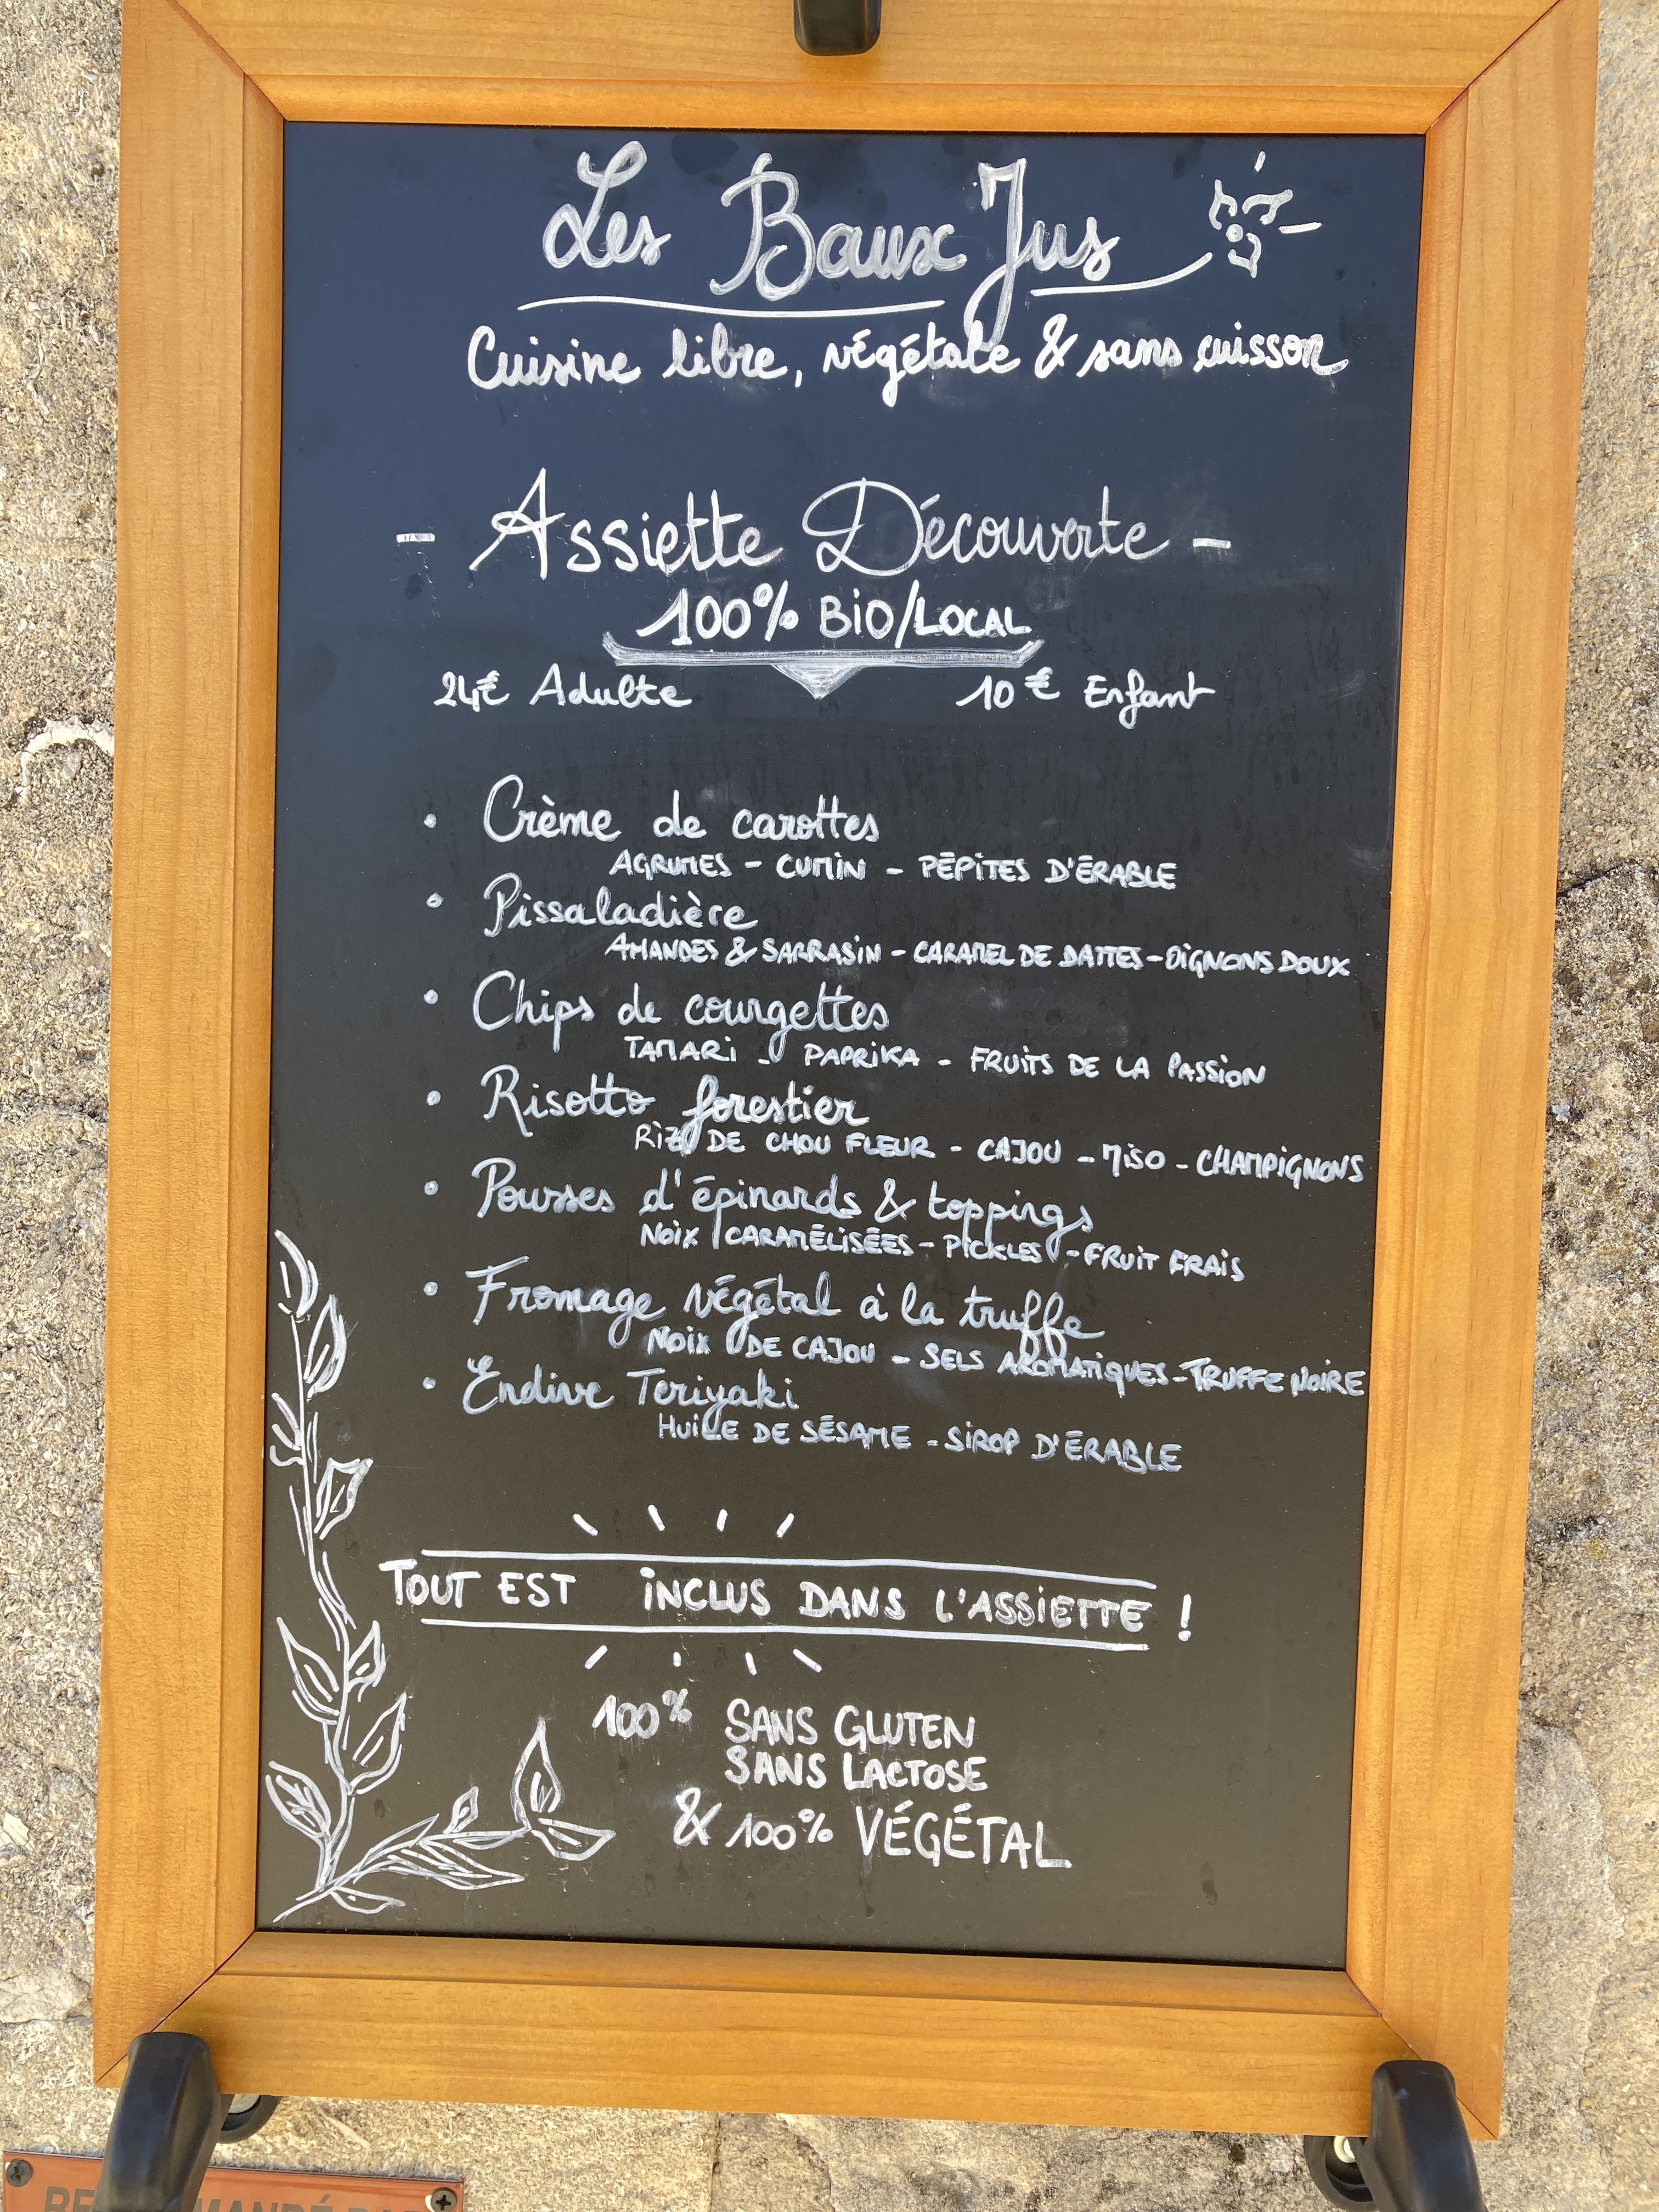 Les Baux Jus
Cuisine libre, végétale & sans cuisson
- Assiette Découverte -
100% BIO/LOCAL
24€ Adulte 10€ Enfant
• Crème de carottes
AGRUMES - CUMIN - PÉPITES D'ÉRABLE
• Pissaladière
AMANDES & SARRASIN - CARAMEL DE DATTES - OIGNONS DOUX
• Chips de courgettes
TAMARI - PAPRIKA - FRUITS DE LA PASSION
• Risotto forestier
RIZ DE CHOU FLEUR - CAJOU - MISO - CHAMPIGNONS
• Pousses d'épinards & toppings
NOIX CARAMÉLISÉES - PICKLES - FRUIT FRAIS
• Fromage végétal à la truffe
NOIX DE CAJOU - SELS AROMATIQUES - TRUFFE NOIRE
• Endive Teriyaki
HUILE DE SÉSAME - SIROP D'ÉRABLE
TOUT EST INCLUS DANS L'ASSIETTE !
100% SANS GLUTEN
SANS LACTOSE
& 100% VÉGÉTAL